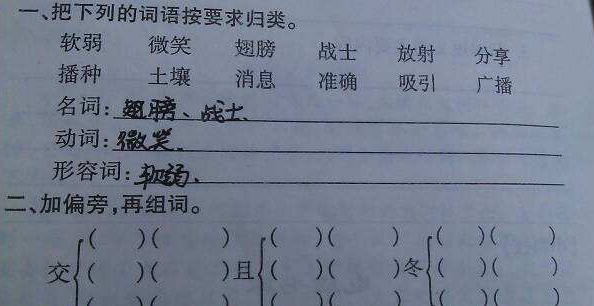 一、把下列的词语按要求归类。
软弱 微笑 翅膀 战士 放射 分享
播种 土壤 消息 准确 吸引 广播
名词：翅膀、战士、
动词：微笑、
形容词：软弱、
二、加偏旁，再组词。
( )( ) ( )( ) ( )( )
交 ( )( ) 且 ( )( ) 冬 ( )( )
( )( ) ( )( ) ( )( )